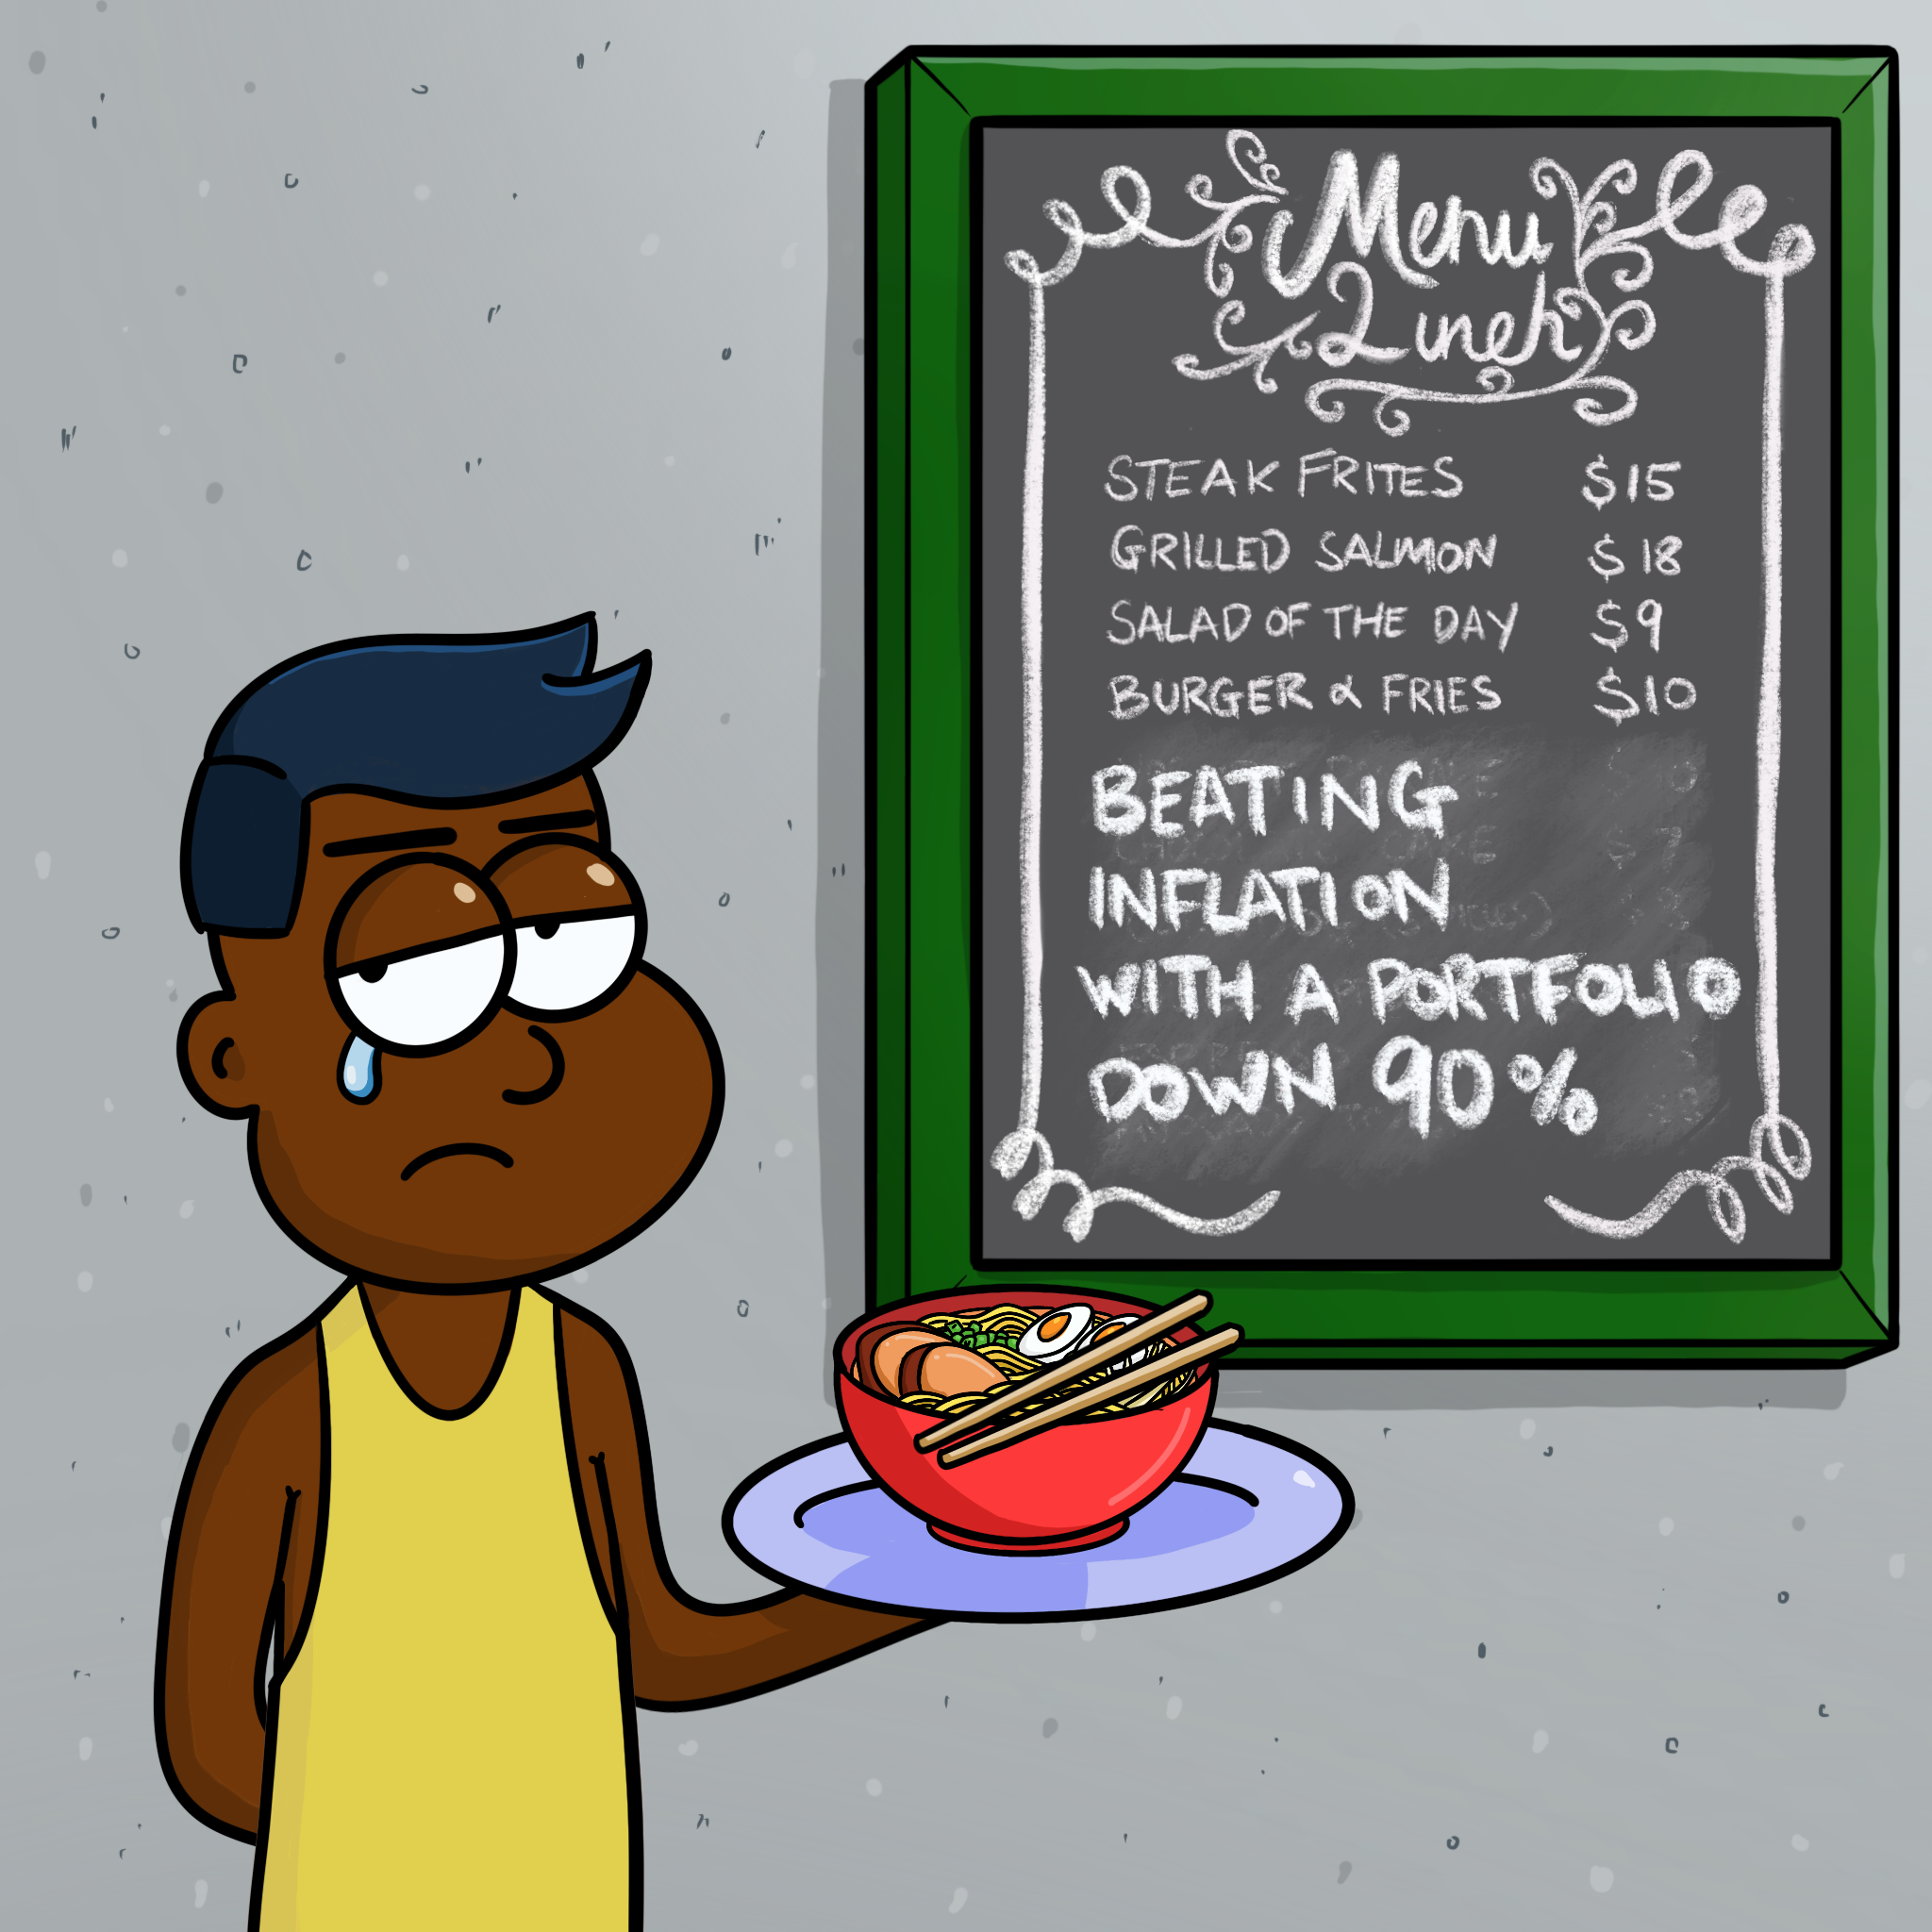 Menu
Lunch
STEAK FRITES $15
GRILLED SALMON $18
SALAD OF THE DAY $9
BURGER & FRIES $10
BEATING
INFLATION
WITH A PORTFOLIO
DOWN 90%